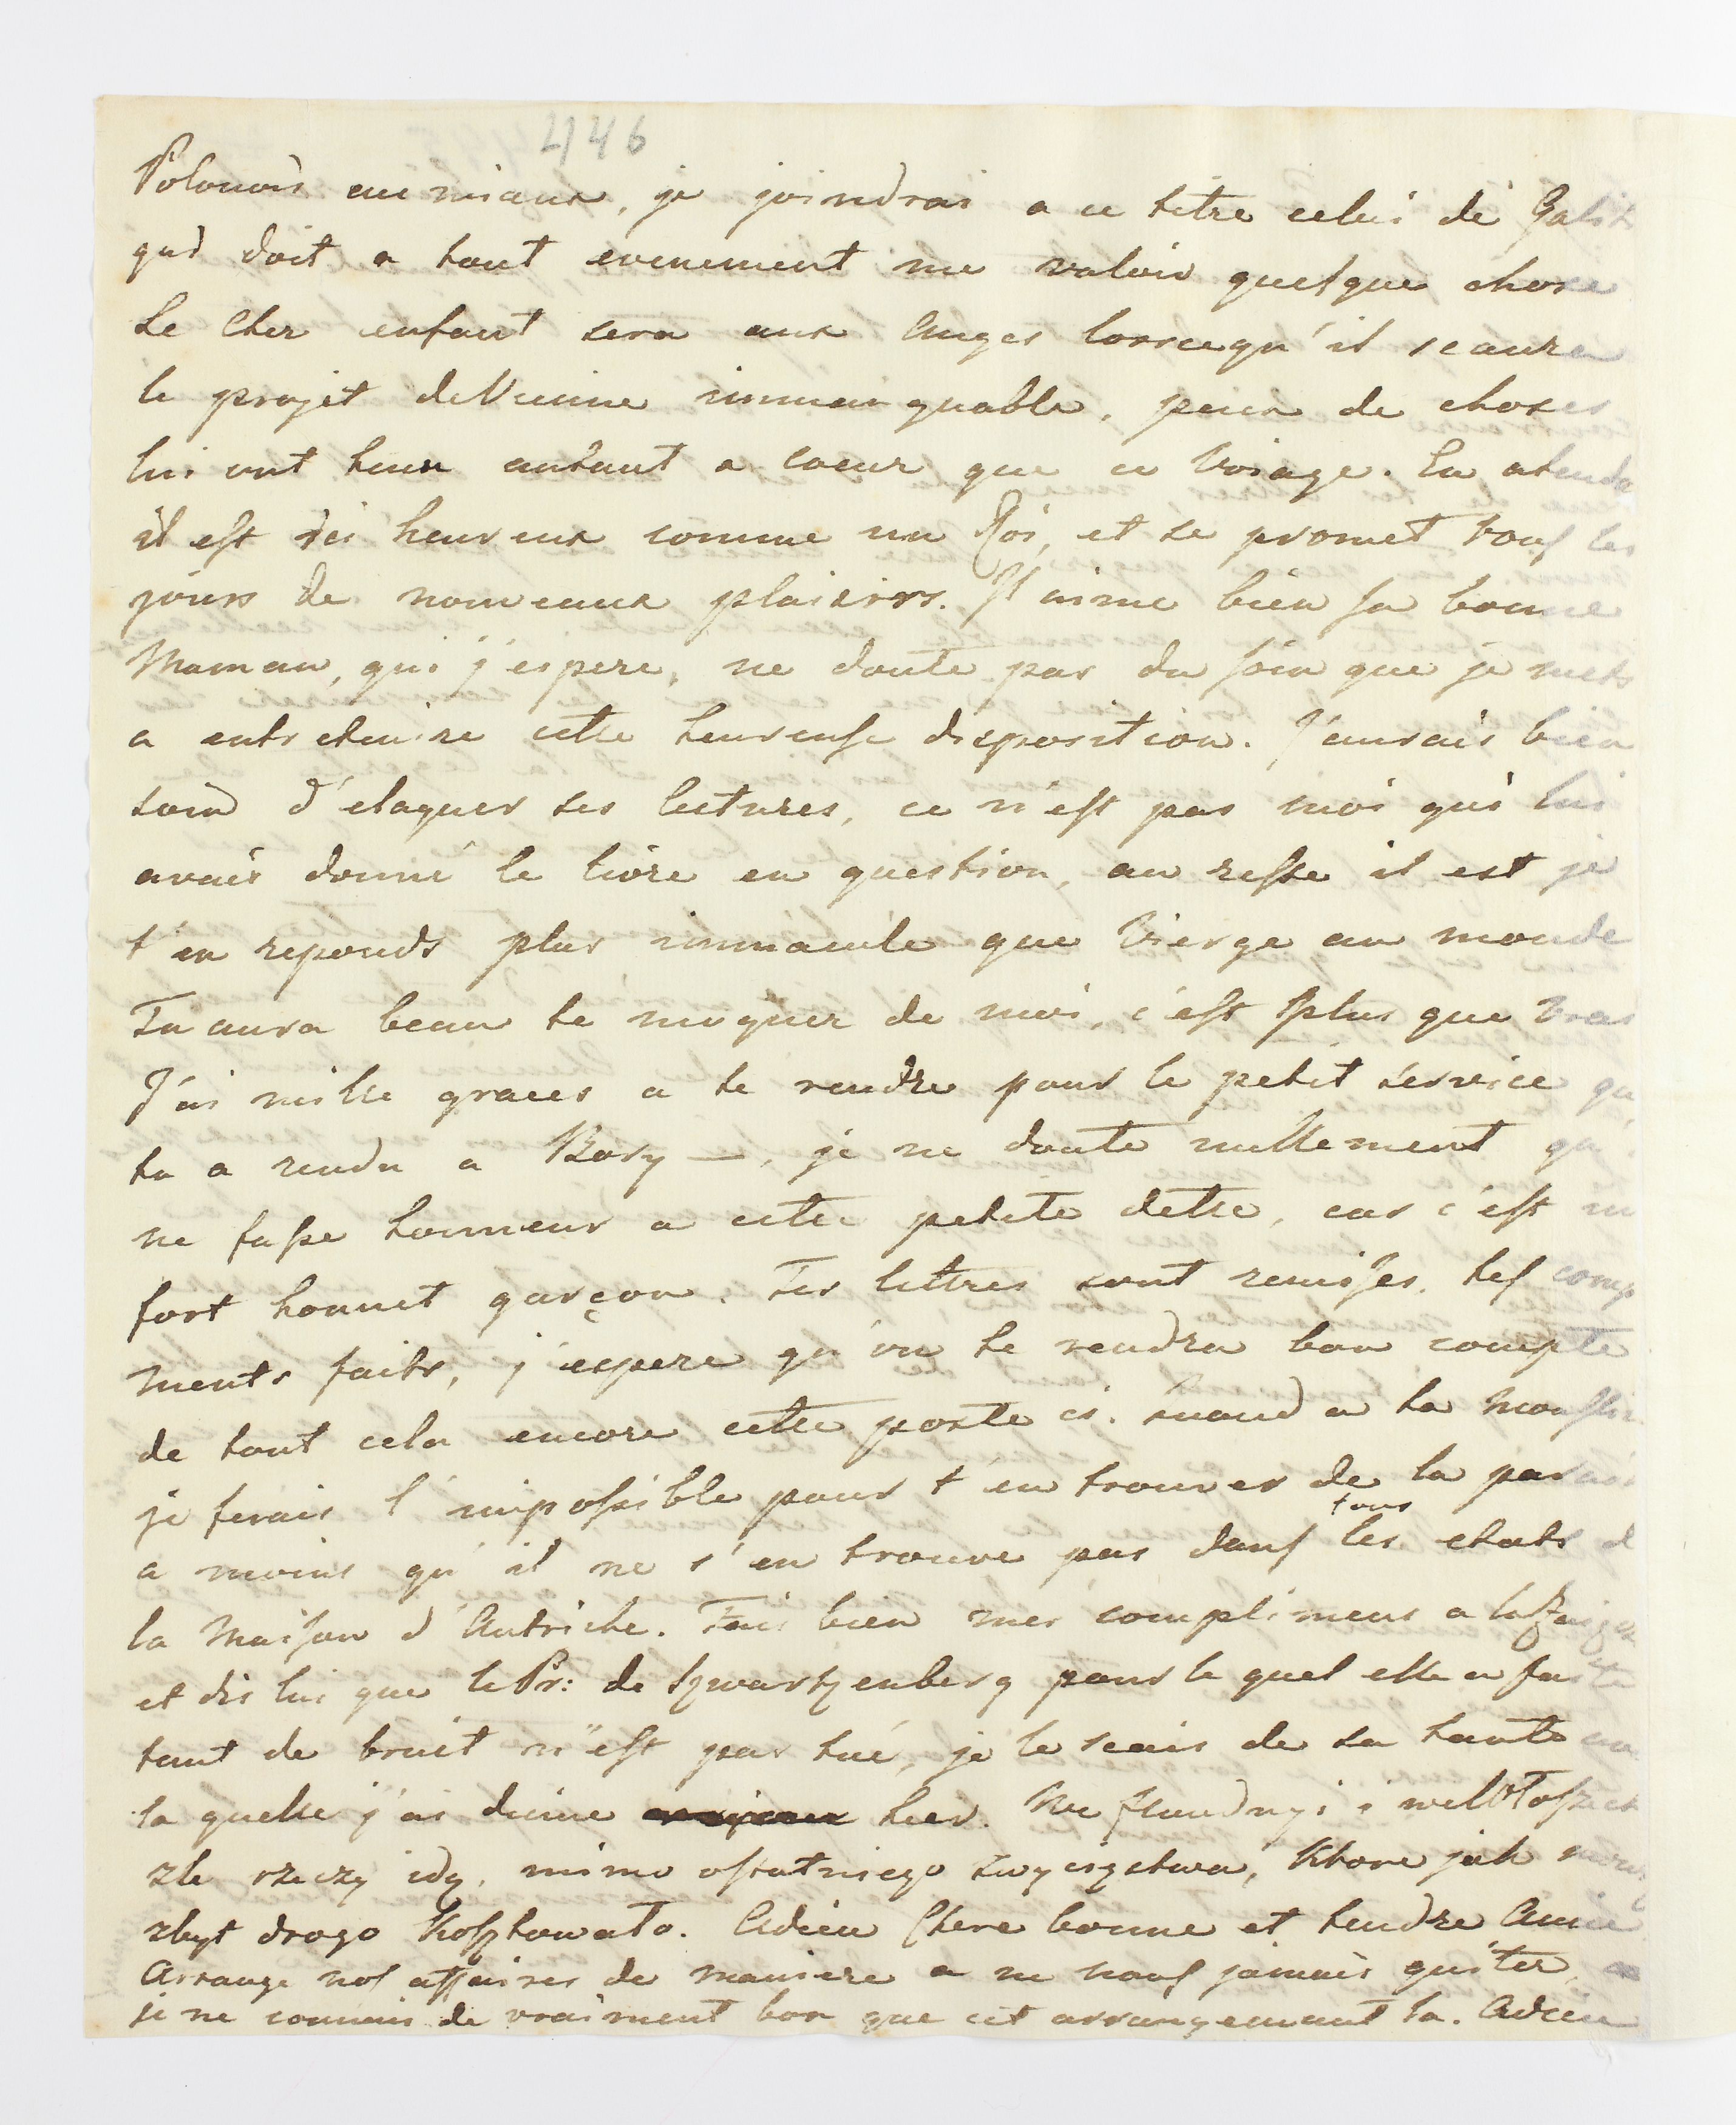 446
Polonois au mieux, je joindrai a ce titre celui de
qui doit a tout evenement me valoir quelque chose
Le Cher enfant sera aux Anges lorscequ'il scaura
le projet de Vienne immanquable, peu de choses
lui ont tenu autant a coeur que ce Voiage. En
il est ici heureux comme un Roi, et se promet tous les
jours de nouveaux plaisirs. Il aime bien sa bonne
Maman, qui j'espere, ne doute pas du soin que je mets
a entretenire cette heureuse disposition. J'aurais bien
soin d'elaguer ses lectures, ce n'est pas moi qui lui
avais donné le livre en question, au reste il est je
t'en reponds plus immacule que Vierge au monde
Tu aura beau te moquer de moi, c'est plus que vrai
J'ai mille graces a te rendre pour le petit service
tu a rendu a —, je ne doute nullement
ne fasse honneur a cette petite dette, car c'est
fort honnet garçon. Tes lettres sont remises, tes comp
ments faits, j'espere qu'on te rendra bon compte
de tout cela encore cette poste ci. Quand a ta
je ferais l'impossible pour t'en trouver de la
a moins qu'il ne s'en trouve pas dans tous les etats d
la Maison d'Autriche. Fais bien mes complimens a
et dis lui que le Pr: de Szwartzenberg pour le quel elle a
tant de bruit n'est pas tué, je le scais de sa tante
la quelle j'ai dinne hier.
zle rzeczy idą, mimo ostatniego zwycięztwa, ktore jak
zbyt drogo kosztowało. Adieu Chere bonne et tendre Amie
Arrange nos affaires de maniere a ne nous jamais quiter,
je ne connais de vraiment bon que cet arrangemant la. Adieu